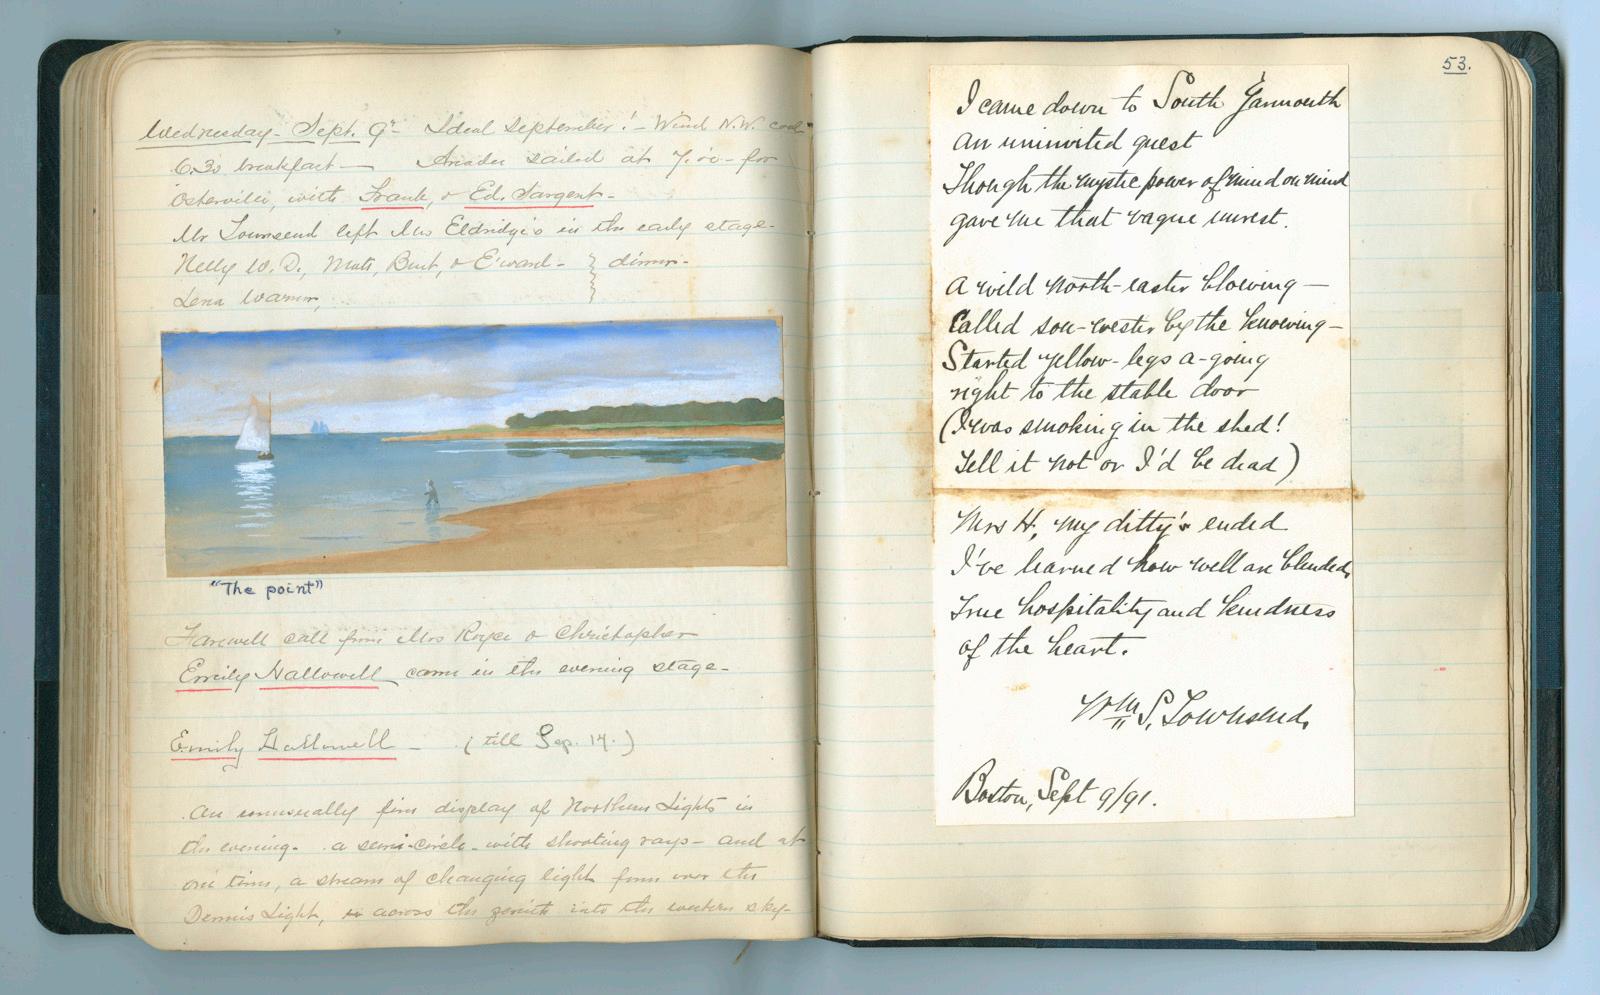 Wednesday - Sept. 9th - Ideal September! - Wind N.W. cool
6.30 breakfast - Ariadne sailed at 7.00 - for
Osterville, with Frank, & Ed. Sargent -
Mr Townsend left Mrs Eldridge's in the early stage -
Nelly W. D., Matt, Burt, & Edward - } dinner -
Lena Warren,
"The point"
Farewell call from Mrs Royce & Christopher
Emily Hallowell came in the evening stage -
Emily Hallowell - (till Sep. 14.)
An unusually fine display of Northern Lights in
the evening - a semi-circle - with shooting rays - and at
one time, a stream of changing light from over the
Dennis Light, across the zenith into the western sky -
53.
I came down to South Yarmouth
an uninvited guest
Though the mystic power of mind on mind
gave me that vague unrest.
A wild north-easter blowing -
Called sou-wester by the knowing -
Started yellow-legs a-going
right to the stable door
(I was smoking in the shed!
Tell it not or I'd be dead)
Mrs H, my ditty's ended
I've learned how well are blended
True hospitality and kindness
of the heart.
Wm S. Townsend.
Boston, Sept 9/91.